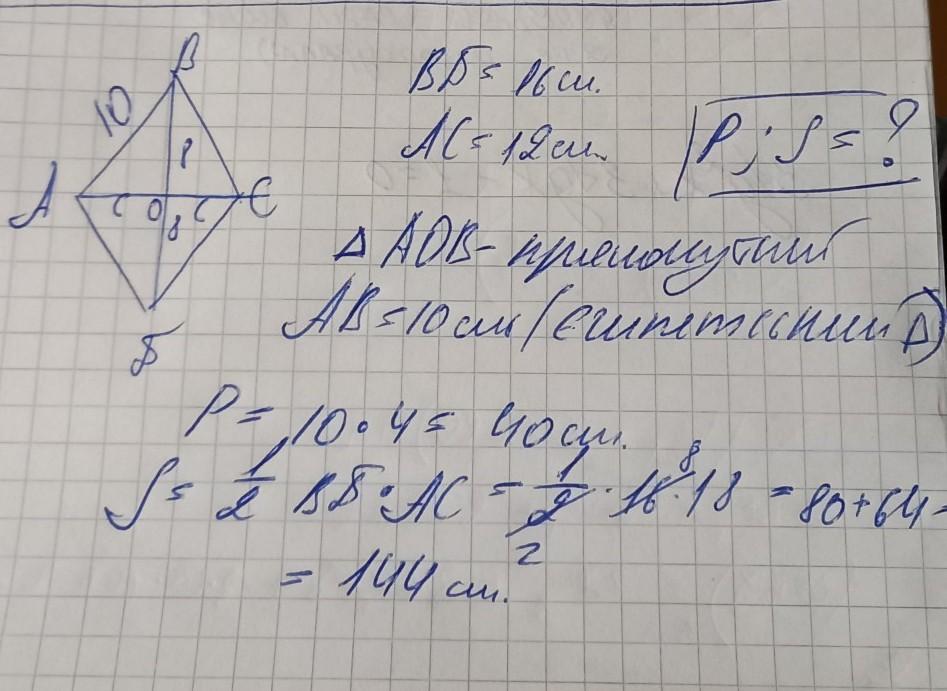 В
10
8
А
6
О
6
С
8
Б
ВБ = 16 см.
АС = 12 см.
P; S = ?
Δ АОВ - прямокутний
АВ = 10 см (єгипетський Δ)
P = 10 · 4 = 40 см.
S = 1/2 ВБ · АС = 1/2 · 16 · 18 = 80 + 64 =
8
2
= 144 см.